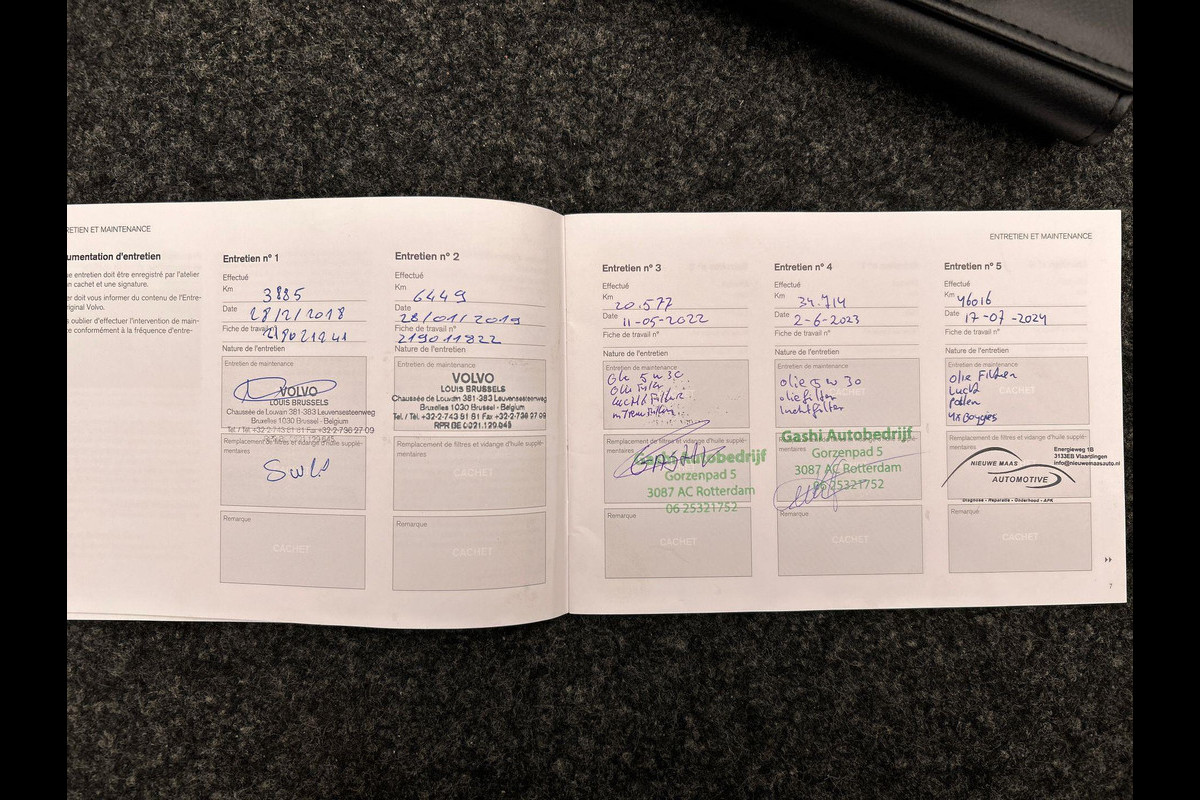 RETIEN ET MAINTENANCE
umentation d'entretien
e entretien doit être enregistré par l'atelier
n cachet et une signature.
er doit vous informer du contenu de l'Entre-
riginal Volvo.
oublier d'effectuer l'intervention de main-
e conformément à la fréquence d'entre-
Entretien n° 1
Effectué
Km 3885
Date 28/2/2018
Fiche de travail n°
Nature de l'entretien
Entretien de maintenance
VOLVO
LOUIS BRUSSELS
Chaussée de Louvain 381-383 Leuvensesteenweg
Bruxelles 1030 Brussel - Belgium
Tel. / Tél. +32-2-743 81 81 Fax +32-2-736 27 09
Remplacement de filtres et vidange d'huile supplé-
mentaires
Remarque
CACHET
Entretien n° 2
Effectué
Km 6449
Date 28/01/2019
Fiche de travail n°
219011822
Nature de l'entretien
Entretien de maintenance
VOLVO
LOUIS BRUSSELS
Chaussée de Louvain 381-383 Leuvensesteenweg
Bruxelles 1030 Brussel - Belgium
Tel. / Tél. +32-2-743 81 81 Fax +32-2-736 27 09
RPR BE 0421.129.045
Remplacement de filtres et vidange d'huile supplé-
mentaires
CACHET
Remarque
CACHET
ENTRETIEN ET MAINTENANCE
Entretien n° 3
Effectué
Km 20.577
Date 11-05-2022
Fiche de travail n°
Nature de l'entretien
Entretien de maintenance
Remplacement de filtres et vidange d'huile supplé-
mentaires
GASHI
Gashi Autobedrijf
Gorzenpad 5
3087 AC Rotterdam
06 25321752
Remarque
CACHET
Entretien n° 4
Effectué
Km 34.714
Date 2-6-2023
Fiche de travail n°
Nature de l'entretien
Entretien de maintenance
olie 5 w 30
oliefilter
luchtfilter
Remplacement de filtres et vidange d'huile supplé-
mentaires
Gashi Autobedrijf
Gorzenpad 5
3087 AC Rotterdam
06 25321752
Remarque
CACHET
Entretien n° 5
Effectué
Km 46016
Date 17-07-2024
Fiche de travail n°
Nature de l'entretien
Entretien de maintenance
olie Filter
CACHET
Remplacement de filtres et vidange d'huile supplé-
mentaires
NIEUWE MAAS
AUTOMOTIVE
Energieweg 1B
3133EB Vlaardingen
info@nieuwemaasauto.nl
Diagnose - Reparatie - Onderhoud - APK
Remarque
CACHET
7